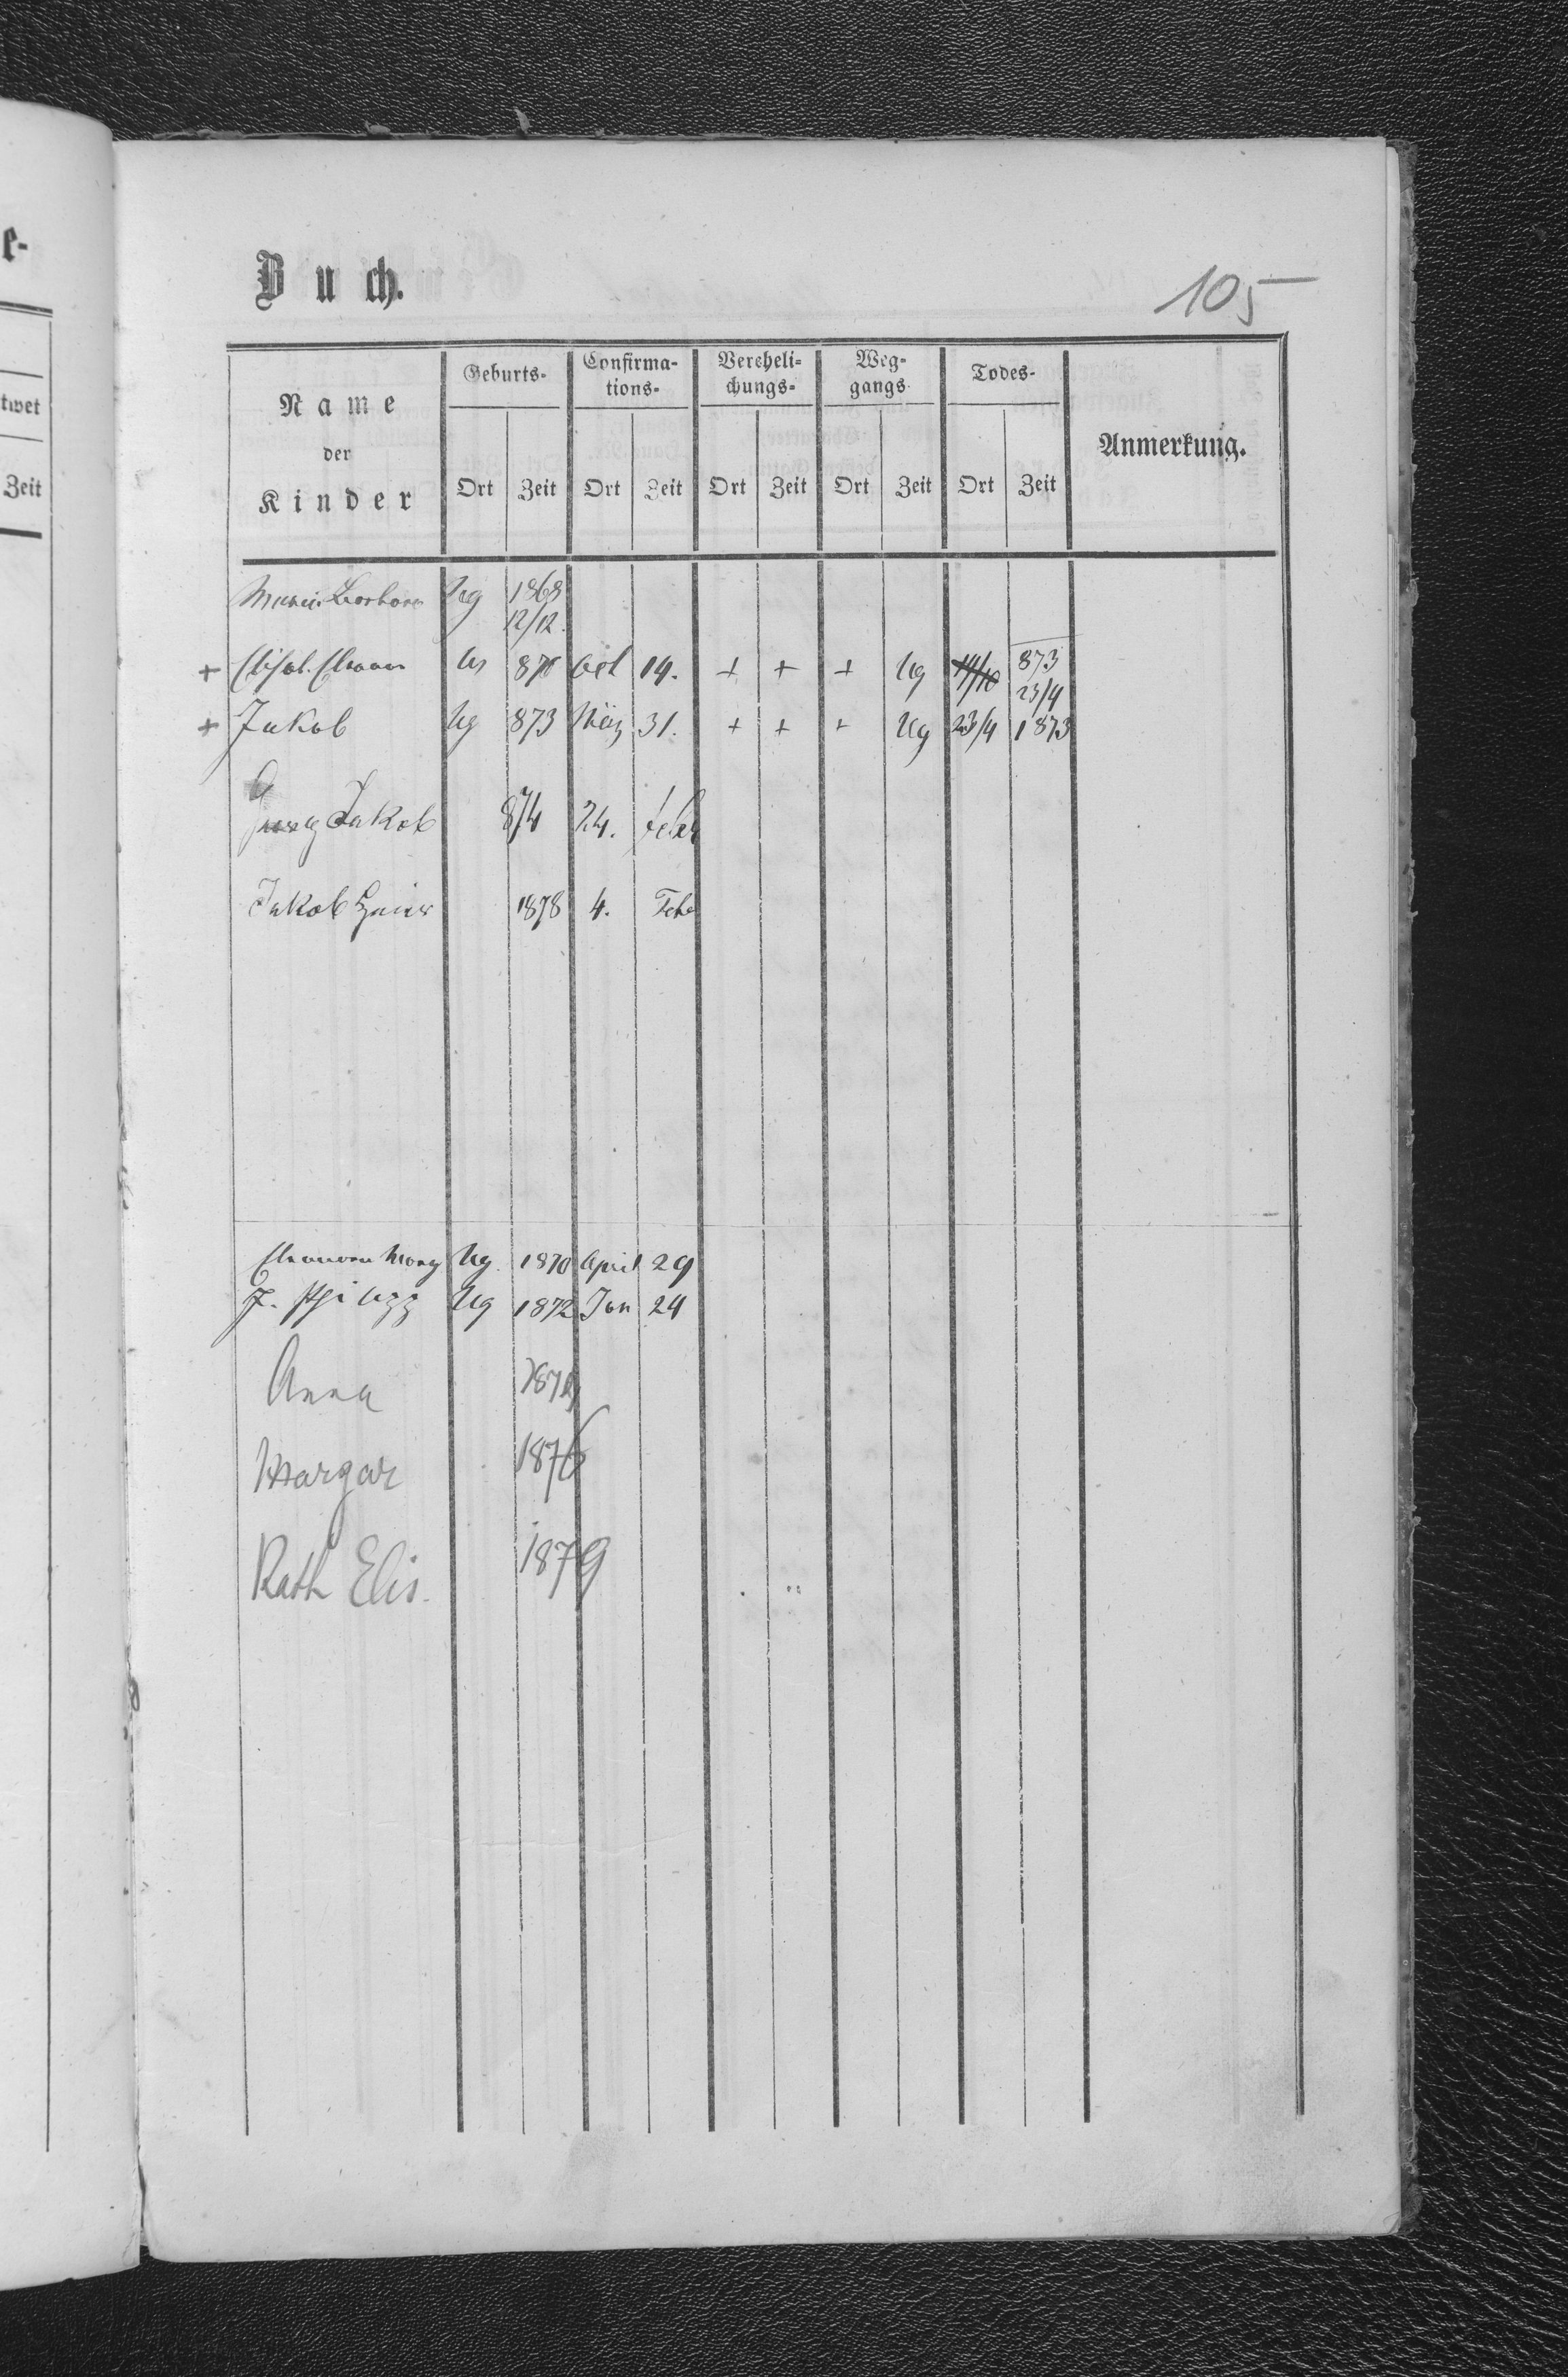 e-
twet
Zeit
Buch.
105
Name der Kinder
Geburts- Confirma-tions- Verehelichungs- Weg-gangs- Todes- Anmerkung.
Ort Zeit Ort Zeit Ort Zeit Ort Zeit Ort Zeit
Ug 1868
12/12.
+ 870 Oct 14. + + + Ug 14/10 873
23/4
+ Jakob Ug 873 März 31. + + + Ug 23/4 1873
Georg Jakob 874 24. Febr
Jakob 1878 4. Febr
Marg Ug. 1870 April 29
Ug 1872 Jan 24
Anna
Margar 1876
Kath Elis. 1879